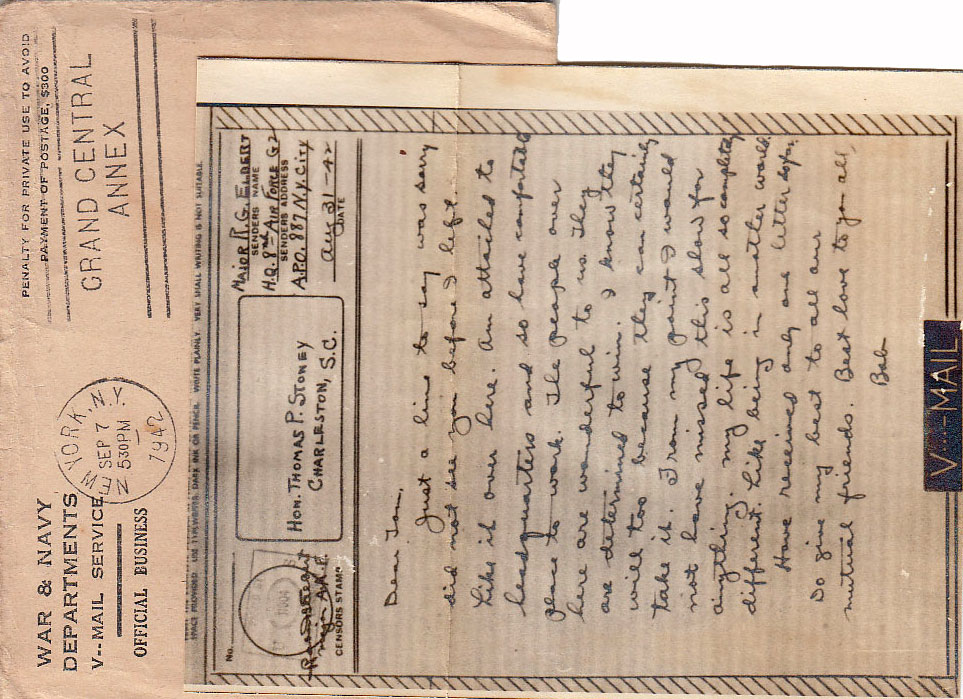 WAR & NAVY
DEPARTMENTS
V--MAIL SERVICE
OFFICIAL BUSINESS
NEW YORK, N.Y.
SEP 7
530PM
1942
PENALTY FOR PRIVATE USE TO AVOID
PAYMENT OF POSTAGE, $300
GRAND CENTRAL
ANNEX
SPACE PROVIDED. USE TYPEWRITER, DARK INK OR PENCIL. WRITE PLAINLY. VERY SMALL WRITING IS NOT SUITABLE.
No.
CENSORS STAMP
HON. THOMAS P. STONEY
CHARLESTON, S.C.
MAJOR R. G. ELBERT
SENDERS NAME
H.Q. 8th AIR FORCE G2
SENDERS ADDRESS
A.P.O. 887 N.Y. CITY
Aug 31-42
DATE
Dear Tom,
Just a line to say I was sorry
did not see you before I left.
Like it over here. Am attached to
headquarters and so have comfortable
place to work. The people over
here are wonderful to us. They
are determined to win. I know they
will too because they can certainly
take it. From my point I would
not have missed this show for
anything. My life is all so completely
different. Like being in another world.
Have received only one letter so far.
Do give my best to all our
mutual friends. Best love to you all,
Bob
V···—MAIL